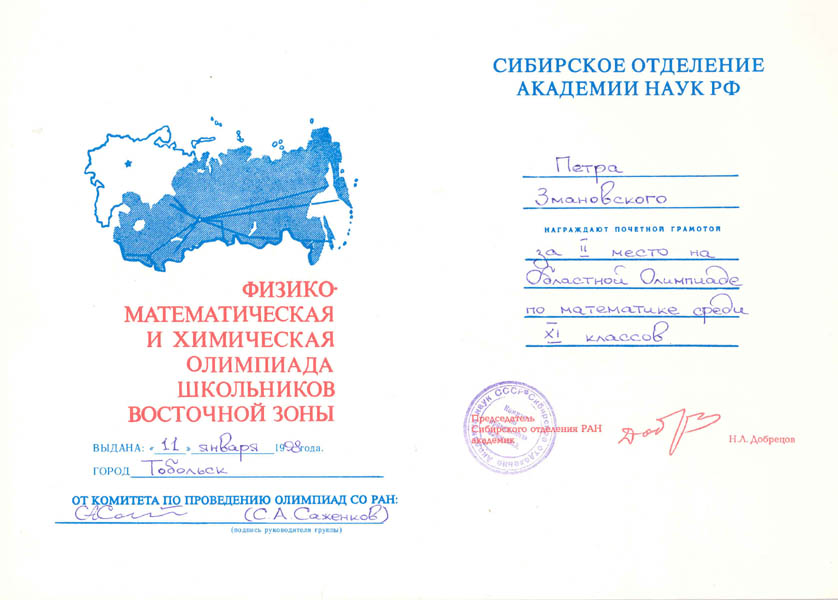 ФИЗИКО-
МАТЕМАТИЧЕСКАЯ
И ХИМИЧЕСКАЯ
ОЛИМПИАДА
ШКОЛЬНИКОВ
ВОСТОЧНОЙ ЗОНЫ
ВЫДАНА: «11» января 1998года.
ГОРОД Тобольск
ОТ КОМИТЕТА ПО ПРОВЕДЕНИЮ ОЛИМПИАД СО РАН:
(С А Саженков)
(подпись руководителя группы)
СИБИРСКОЕ ОТДЕЛЕНИЕ
АКАДЕМИИ НАУК РФ
Петра
Змановского
НАГРАЖДАЮТ ПОЧЕТНОЙ ГРАМОТОЙ
за II место на
Областной Олимпиаде
по математике среди
XI классов
Председатель
Сибирского отделения РАН
академик
Н.Л. Добрецов